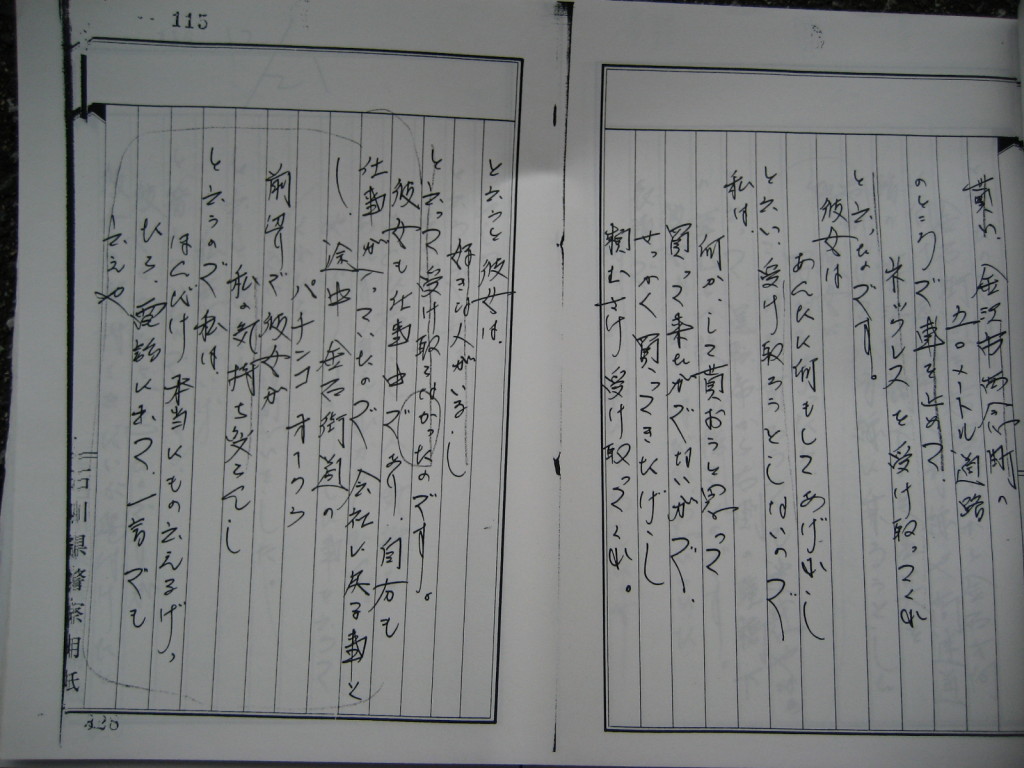 金沢市西念町の
五〇メートル道路
のところで車を止めて、
ネックレスを受け取ってくれ
と言ったのです。
彼女は
あんたに何もしてあげれんし
と言い、受け取ろうとしないので
私は、
何か、して貰おうと思って
買って来たがでないがで、
せっかく買ってきたげし
頼むさけ受け取ってくれ。
と言うと彼女は、
好きな人がいるし
と言って受け取ってなかったのです。
彼女も仕事中であり、自分も
仕事が入っていたので会社に戻る事と
し、途中金石街道の
パチンコオークラ
前辺で彼女が
私の気持ち変えんし
と言うので私は、
ほんだけ本当にもの言えるげ、
たら、電話に出て、一言でも
言えや
石川県警察用紙
115